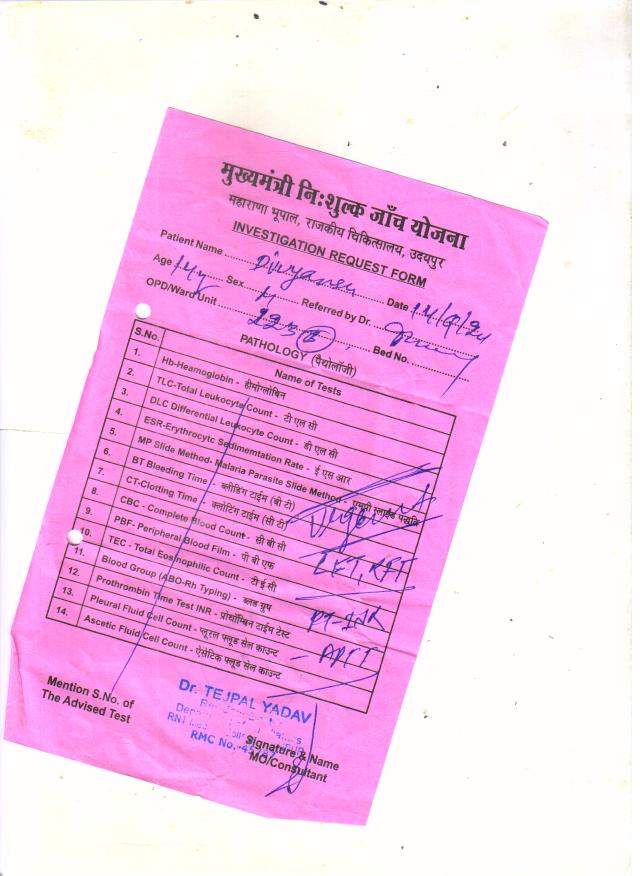 मुख्यमंत्री नि:शुल्क जाँच योजना
महाराणा भूपाल, राजकीय चिकित्सालय, उदयपुर
INVESTIGATION REQUEST FORM
Patient Name Date 14/9/24
Age 14y Sex M Referred by Dr.
OPD/Ward Unit 223 Bed No.
PATHOLOGY (पैथोलॉजी)
S.No. Name of Tests
1. Hb-Heamoglobin - हीमोग्लोबिन
2. TLC-Total Leukocyte Count - टी एल सी
3. DLC Differential Leukocyte Count - डी एल सी
4. ESR-Erythrocytc Sedimemtation Rate - ई एस आर
5. MP Slide Method- Malaria Parasite Slide Method - एमपी स्लाईड पद्धति
6. BT Bleeding Time - ब्लीडिंग टाईम (बी टी)
7. CT-Clotting Time - क्लोटिंग टाईम (सी टी)
8. CBC - Complete Blood Count - सी बी सी
9. PBF- Peripheral Blood Film - पी बी एफ
10. TEC - Total Eosinophilic Count - टी ई सी
11. Blood Group (ABO-Rh Typing) - ब्लड ग्रुप
12. Prothrombin Time Test INR - प्रोथ्रोम्बिन टाईम टेस्ट
13. Pleural Fluid Cell Count - प्लूरल फ्लूड सेल काउन्ट
14. Ascetic Fluid Cell Count - ऐसेटिक फ्लूड सेल काउन्ट
LFT, KFT
PT-INR
- APTT
Mention S.No. of
The Advised Test
Dr. TEJPAL YADAV
RMC No.
Signature & Name
MO/Consultant